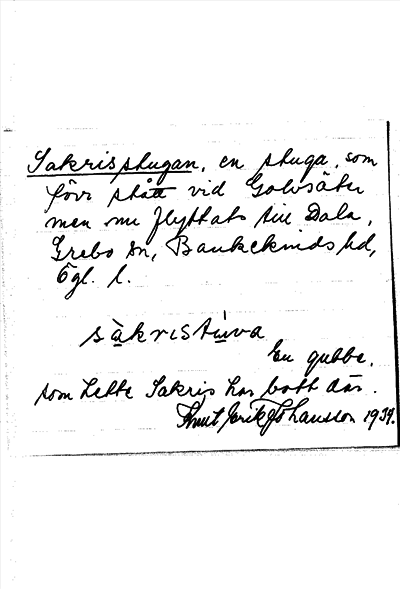 Sakrisstugan, en stuga, som
förr stått vid Golvsäter
men nu flyttats till Dala,
Grebo sn, Bankekinds hd,
Ögl. l.
sàkristùva
En gubbe,
som hette Sakris har bott där.
Knut Erik Johansson 1939.